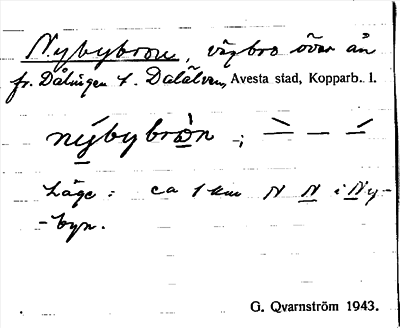 Nybybron, vägbro över ån
fr. Dålingen t. Dalälven, Avesta stad, Kopparb. l.
nýbybròn ;
Läge : ca 1 km N N i Ny-
-byn.
G. Qvarnström 1943.